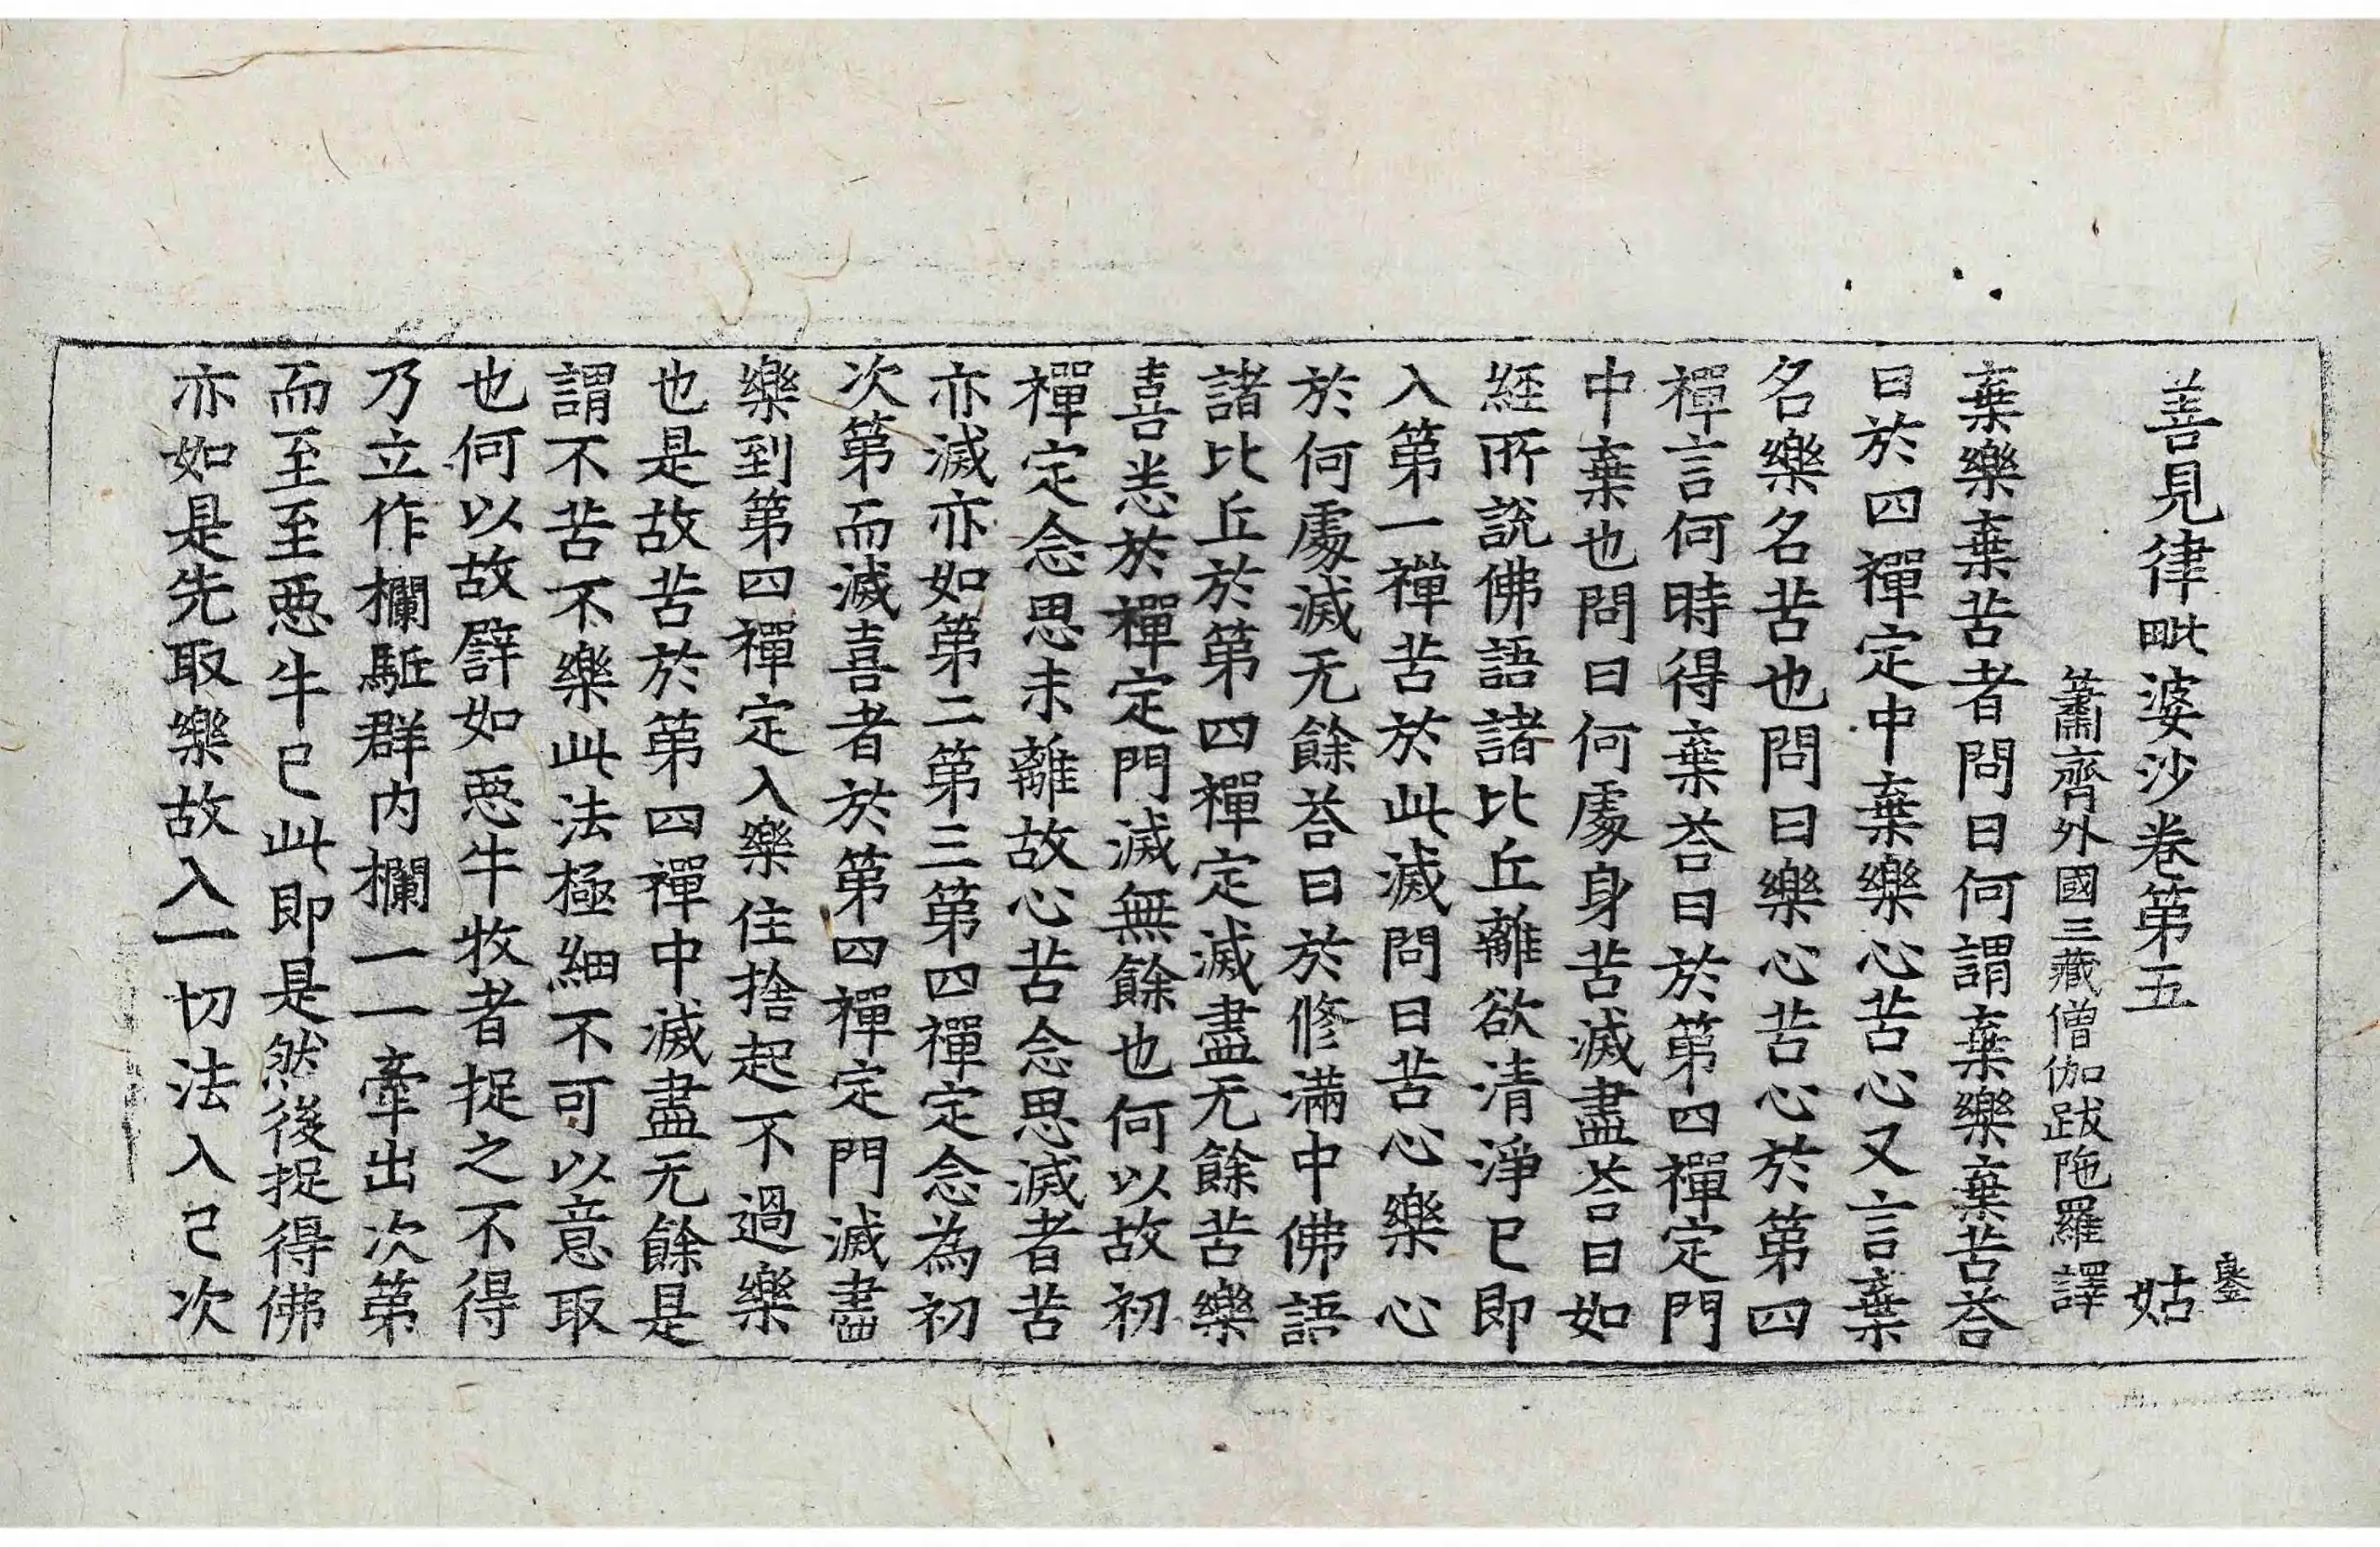 善見律毗婆沙卷第五 姑
蕭齊外國三藏僧伽跋陁羅譯
棄樂棄苦者問曰何謂棄樂棄苦荅
曰於四禪定中棄樂心苦心又言棄
名樂名苦也問曰樂心苦心於第四
禪言何時得棄荅曰於第四禪定門
中棄也問曰何處身苦滅盡荅曰如
経所說佛語諸比丘離欲清淨已即
入第一禪苦於此滅問曰苦心樂心
於何處滅无餘荅曰於修滿中佛語
諸比丘於第四禪定滅盡无餘苦樂
喜恚於禪定門滅無餘也何以故初
禪定念思未離故心苦念思滅者苦
亦滅亦如第二第三第四禪定念為初
次第而滅喜者於第四禪定門滅盡
樂到第四禪定入樂住捨起不過樂
也是故苦於第四禪中滅盡无餘是
謂不苦不樂此法極細不可以意取
也何以故譬如惡牛牧者捉之不得
乃立作欄駈群内欄一一牽出次第
而至至惡牛已此即是然後捉得佛
亦如是先取樂故入一切法入已次